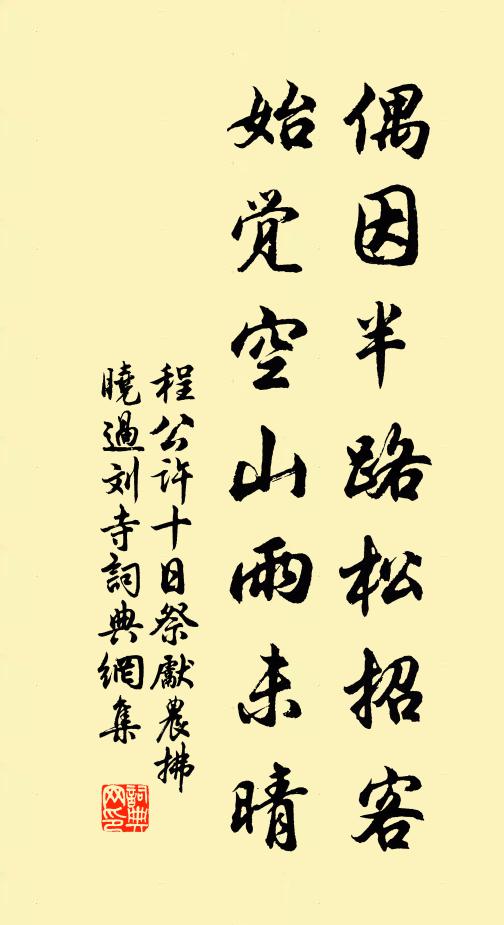 偶因半路松招客
始觉空山雨未晴
程公许十日祭獻農拂
曉過刘寺詞典網集
詞典网印